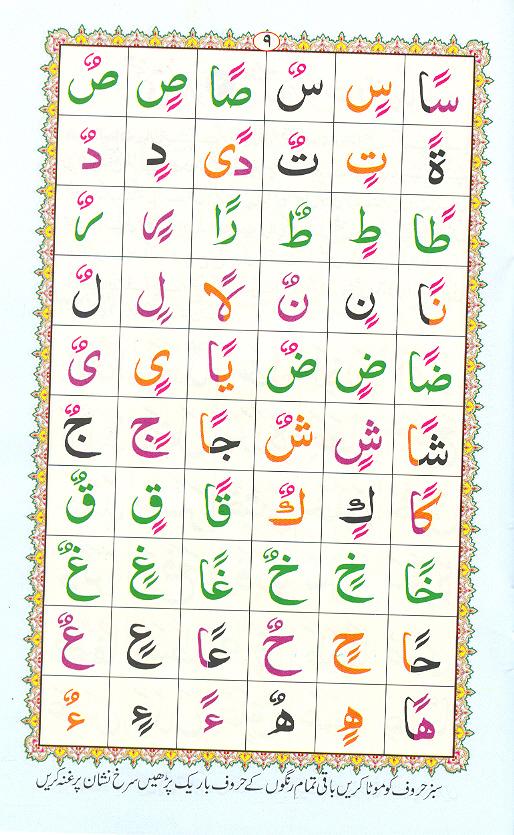 ۹
سًا سٍ سٌ صًا صٍ صٌ
ةً تٍ تٌ دًى دٍ دٌ
طًا طٍ طٌ رًا رٍ رٌ
نًا نٍ نٌ لًا لٍ لٌ
ضًا ضٍ ضٌ يًا ىٍ ىٌ
شًا شٍ شٌ جًا جٍ جٌ
كًا كٍ كٌ قًا قٍ قٌ
خًا خٍ خٌ غًا غٍ غٌ
حًا حٍ حٌ عًا عٍ عٌ
هًا هٍ هٌ ءً ءٍ ءٌ
سبز حروف کو موٹا کریں باقی تمام رنگوں کے حروف باریک پڑھیں سرخ نشان پر غنہ کریں